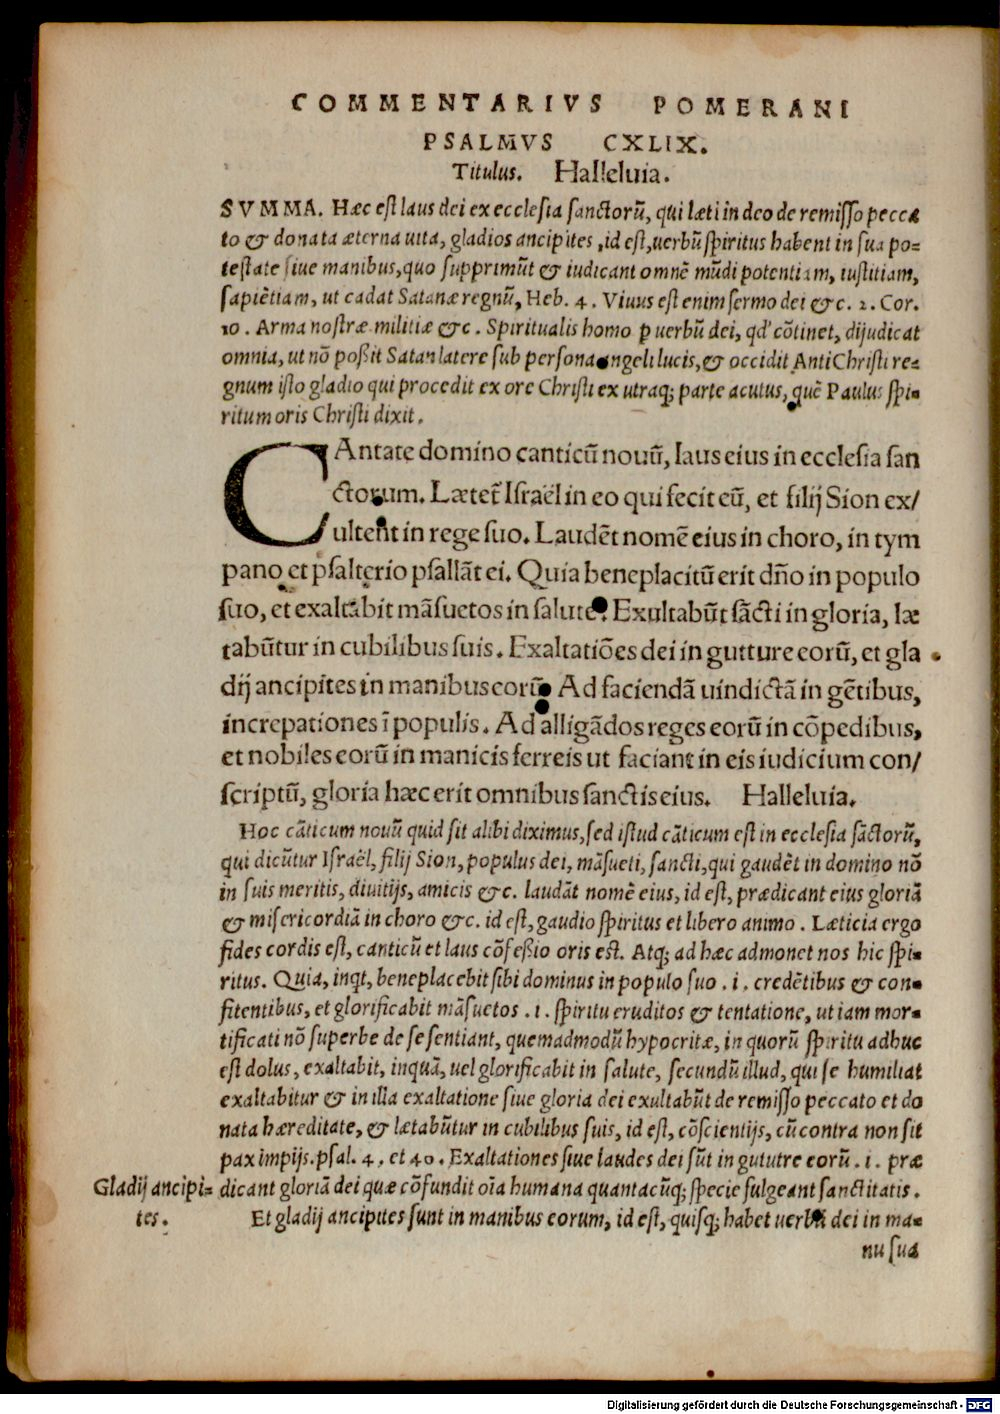 COMMENTARIVS POMERANI
PSALMVS CXLIX.
Titulus. Halleluia.
SVMMA. Hæc est laus dei ex ecclesia sanctorũ, qui læti in deo de remisso pecca
to & donata æterna uita, gladios ancipites, id est, uerbũ spiritus habent in sua po-
testate siue manibus, quo supprimũt & iudicant omnẽ mũdi potentiam, iustitiam,
sapiẽtiam, ut cadat Satanæ regnũ, Heb. 4. Viuus est enim sermo dei &c. 2. Cor.
10. Arma nostræ militiæ &c. Spiritualis homo ꝑ uerbũ dei, qd' cõtinet, dijudicat
omnia, ut nõ poßit Satan latere sub persona angeli lucis, & occidit AntiChristi re-
gnum isto gladio qui procedit ex ore Christi ex utraq; parte acutus, quẽ Paulus spi-
ritum oris Christi dixit.
CAntate domino canticũ nouũ, laus eius in ecclesia san
ctorum. Lætet̃ Israël in eo qui fecit eũ, et filij Sion ex/
ultent in rege suo. Laudẽt nomẽ eius in choro, in tym
pano et psalterio psallãt ei. Quia beneplacitũ erit dño in populo
suo, et exaltabit mãsuetos in salute. Exultabũt sãcti in gloria, læ
tabũtur in cubilibus suis. Exaltatiões dei in gutture eorũ, et gla
dij ancipites in manibus eorũ. Ad faciendã uindictã in gẽtibus,
increpationes ĩ populis. Ad alligãdos reges eorũ in cõpedibus,
et nobiles eorũ in manicis ferreis ut faciant in eis iudicium con/
scriptũ, gloria hæc erit omnibus sanctis eius. Halleluia.
Hoc cãticum nouũ quid sit alibi diximus, sed istud cãticum est in ecclesia sãctorũ,
qui dicũtur Israël, filij Sion, populus dei, mãsueti, sancti, qui gaudẽt in domino nõ
in suis meritis, diuitijs, amicis &c. laudãt nomẽ eius, id est, prædicant eius gloriã
& misericordiã in choro &c. id est, gaudio spiritus et libero animo. Læticia ergo
fides cordis est, canticũ et laus cõfeßio oris est. Atq; ad hæc admonet nos hic spi-
ritus. Quia, inqt, beneplacebit sibi dominus in populo suo .i. credẽtibus & con-
fitentibus, et glorificabit mãsuetos .i. spiritu eruditos & tentatione, ut iam mor-
tificati nõ superbe de se sentiant, quemadmodũ hypocritæ, in quorũ spiritu adhuc
est dolus, exaltabit, inquã, uel glorificabit in salute, secundũ illud, qui se humiliat
exaltabitur & in illa exaltatione siue gloria dei exultabũt de remisso peccato et do
nata hæreditate, & lætabũtur in cubilibus suis, id est, cõscientijs, cũ contra non sit
pax impijs. psal. 4. et 40. Exaltationes siue laudes dei sũt in gututre eorũ .i. præ
Gladij ancipi- dicant gloriã dei quæ cõfundit oĩa humana quantacũq; specie fulgeant sanctitatis.
tes. Et gladij ancipites sunt in manibus eorum, id est, quisq; habet uerbũ dei in ma-
nu sua
Digitalisierung gefördert durch die Deutsche Forschungsgemeinschaft - DFG